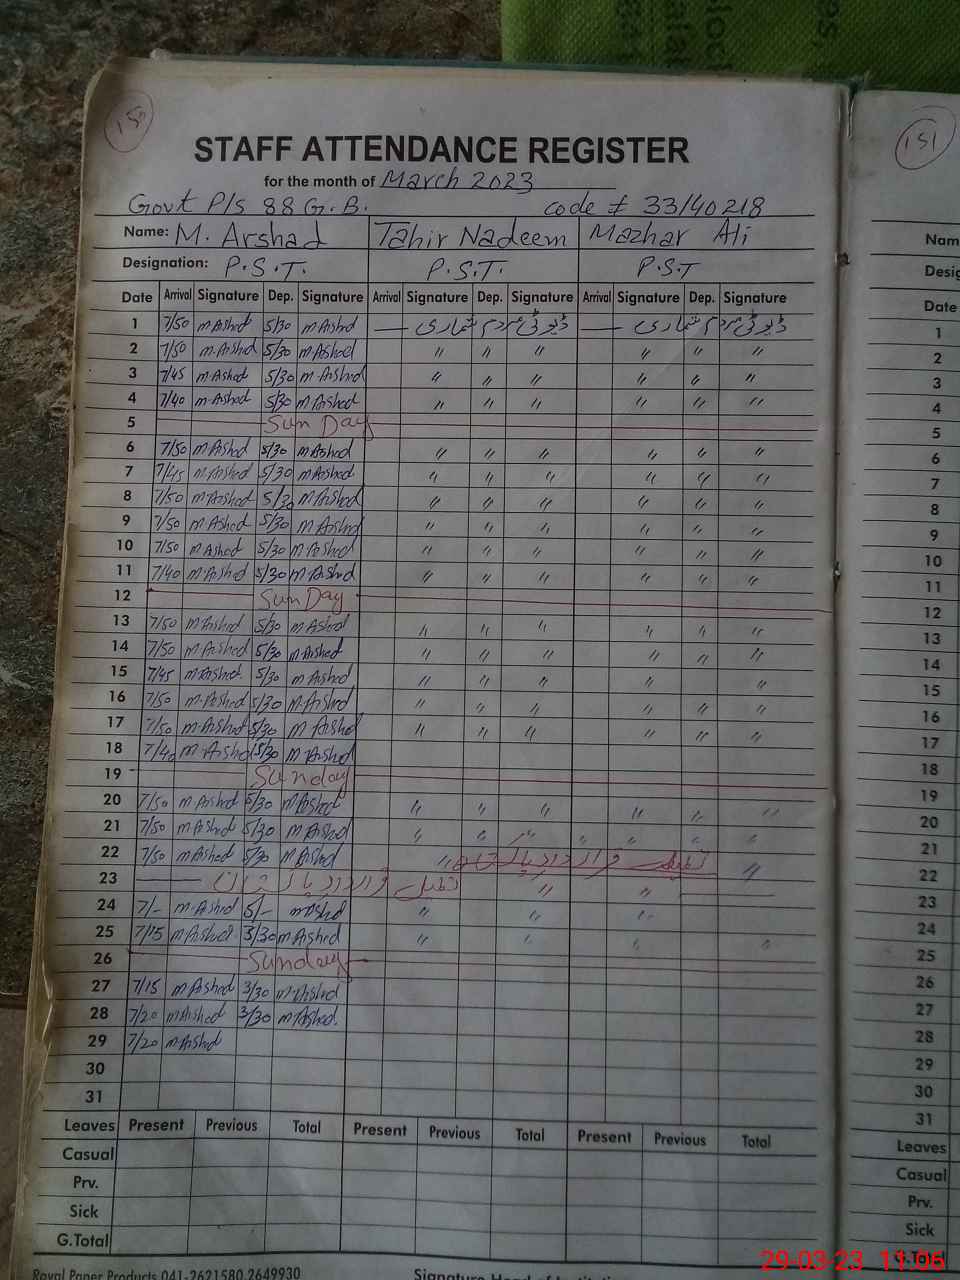 150
151
STAFF ATTENDANCE REGISTER
for the month of March 2023
Govt P/s 88 G.B. code # 33140218
Name: M. Arshad Tahir Nadeem Mazhar Ali
Designation: P.S.T. P.S.T. P.S.T
Date Arrival Signature Dep. Signature Arrival Signature Dep. Signature Arrival Signature Dep. Signature
1 7/50 m Arshad 5/30 m Arshad ڈیوٹی مردم شماری ڈیوٹی مردم شماری
2 7/50 m. Arshad 5/30 m Arshad " " " " " "
3 7/45 m. Arshad 5/30 m. Arshad " " " " " "
4 7/40 m. Arshad 5/30 m Arshad " " " " " "
5 Sun Day
6 7/50 m Arshad 5/30 m Arshad " " " " " "
7 7/45 m Arshad 5/30 m Arshad " " " " " "
8 7/50 m. Arshad 5/30 m Arshad " " " " " "
9 7/50 m. Arshad 5/30 m Arshad " " " " " "
10 7/50 m Arshad 5/30 m. Arshad " " " " " "
11 7/40 m. Arshad 5/30 m. Arshad " " " " " "
12 Sun Day
13 7/50 m. Arshad 5/30 m Arshad " " " " " "
14 7/50 m. Arshad 5/30 m. Arshad " " " " " "
15 7/45 m. Arshad. 5/30 m Arshad " " " " "
16 7/50 m. Arshad 5/30 m. Arshad " " " " " "
17 7/50 m. Arshad 5/30 m Arshad " " " " " "
18 7/40 m. Arshad 5/30 m. Arshad
19 Sunday
20 7/50 m Arshad 5/30 m Arshad " " " " " "
21 7/50 m. Arshad 5/30 m Arshad " " " " " " "
22 7/50 m Arshad 5/30 m Arshad " تعطیل قرارداد پاکستان "
23 تعطیل قرارداد پاکستان " "
24 7/- m. Arshad 5/- m Arshad " " "
25 7/15 m Arshad 3/30 m Arshad " " " "
26 Sunday
27 7/15 m Arshad 3/30 m Arshad
28 7/20 m Arshad 3/30 m Arshad.
29 7/20 m Arshad
30
31
Leaves Present Previous Total Present Previous Total Present Previous Total
Casual
Prv.
Sick
G.Total
Royal Paper Products 041-2621580, 2649930 Signature Head of
Nam
Desig
Date
1
2
3
4
5
6
7
8
9
10
11
12
13
14
15
16
17
18
19
20
21
22
23
24
25
26
27
28
29
30
31
Leaves
Casual
Prv.
Sick
G.Total
29-03-23 11:06